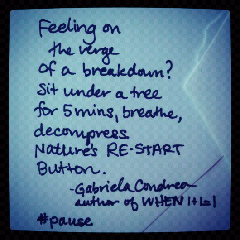 Feeling on
the verge
of a breakdown?
Sit under a tree
for 5 mins, breathe,
decompress
Nature's RE-START
Button.
-Gabriela Condrea
author of WHEN 1+1=1
#pause